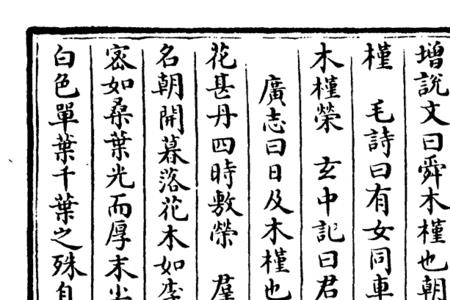 增說文曰舜木槿也朝
槿 毛詩曰有女同車
木槿榮 玄中記曰君
廣志曰日及木槿也
花甚丹四時敷榮 羣
名朝開暮落花木如李
密如桑葉光而厚末尖
白色單葉千葉之殊自